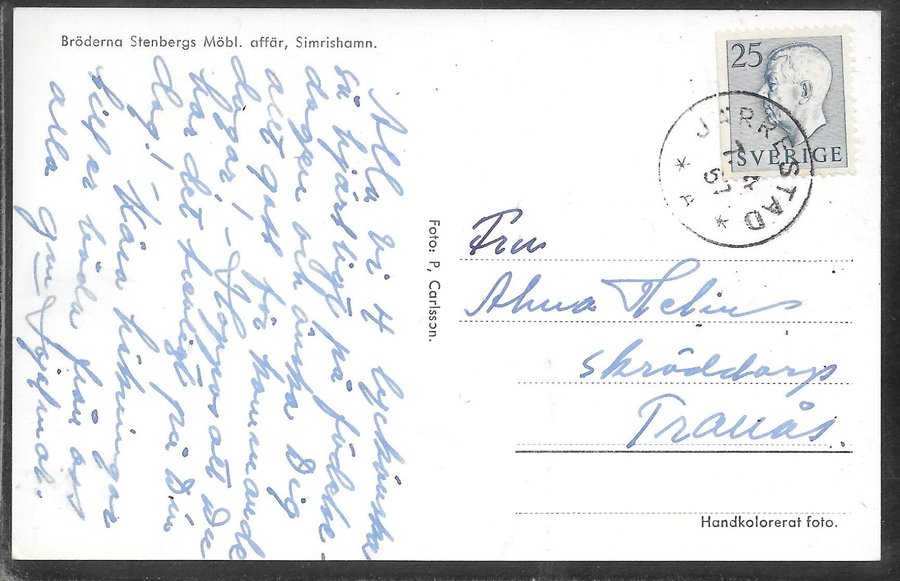 Bröderna Stenbergs Möbl. affär, Simrishamn.
Alla vi 4 lyckönska
så hjärtligt på födelse-
dagen och önska Dig
allt gott för kommande
dagar! - Hoppas att Du
har det trevligt på Din
dag! - Kära hälsningar
till er båda från oss
alla
Foto: P, Carlsson.
25
SVERIGE
JÄRRESTAD
Fru
Alma Helin
Skröddarp
Tranås.
Handkolorerat foto.